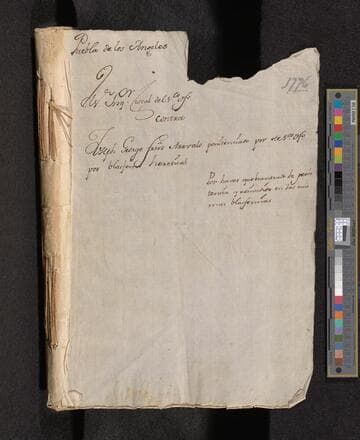 Puebla de los Angeles
1776
El Sr. Inqr. fiscal del Sto. Offo.
contra
Joseph George Arevalo penitenciado por este Sto. Offo.
por blasfemo heretical
Por haver quebrantado la peni
tencia y reincidido en las mis
mas blasfemias